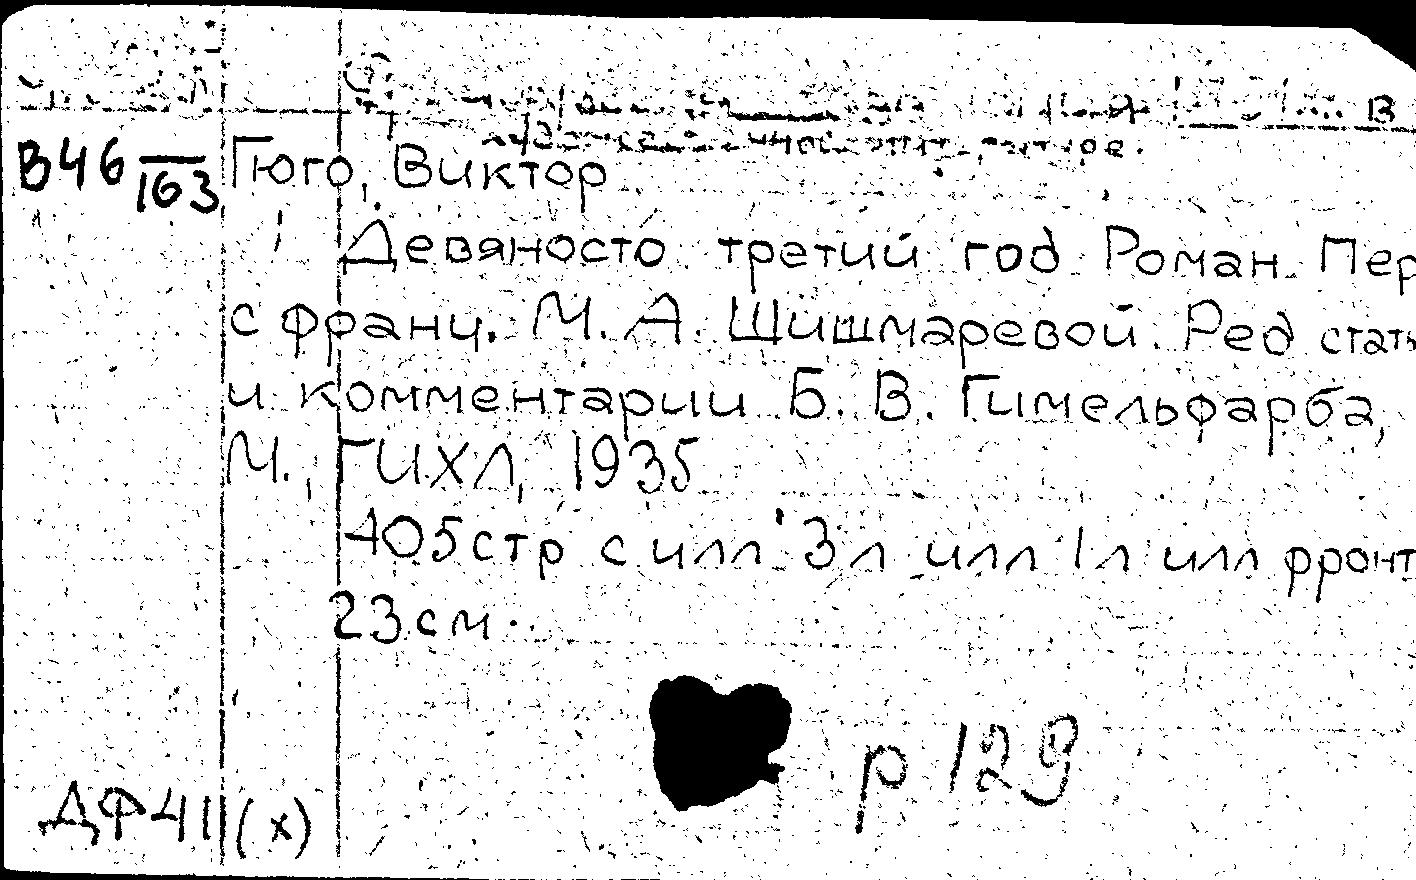 В46 163 Гюго, Виктор
Девяносто третий год Роман Пер
с франц. М. А. Шишмаревой. Ред стать
и комментарии Б. В. Гимельфарба,
М., ГИХЛ, 1935
405 стр с илл 3 л илл 1 л илл фронт
23 см.
р 129
ДФ 411 (х)